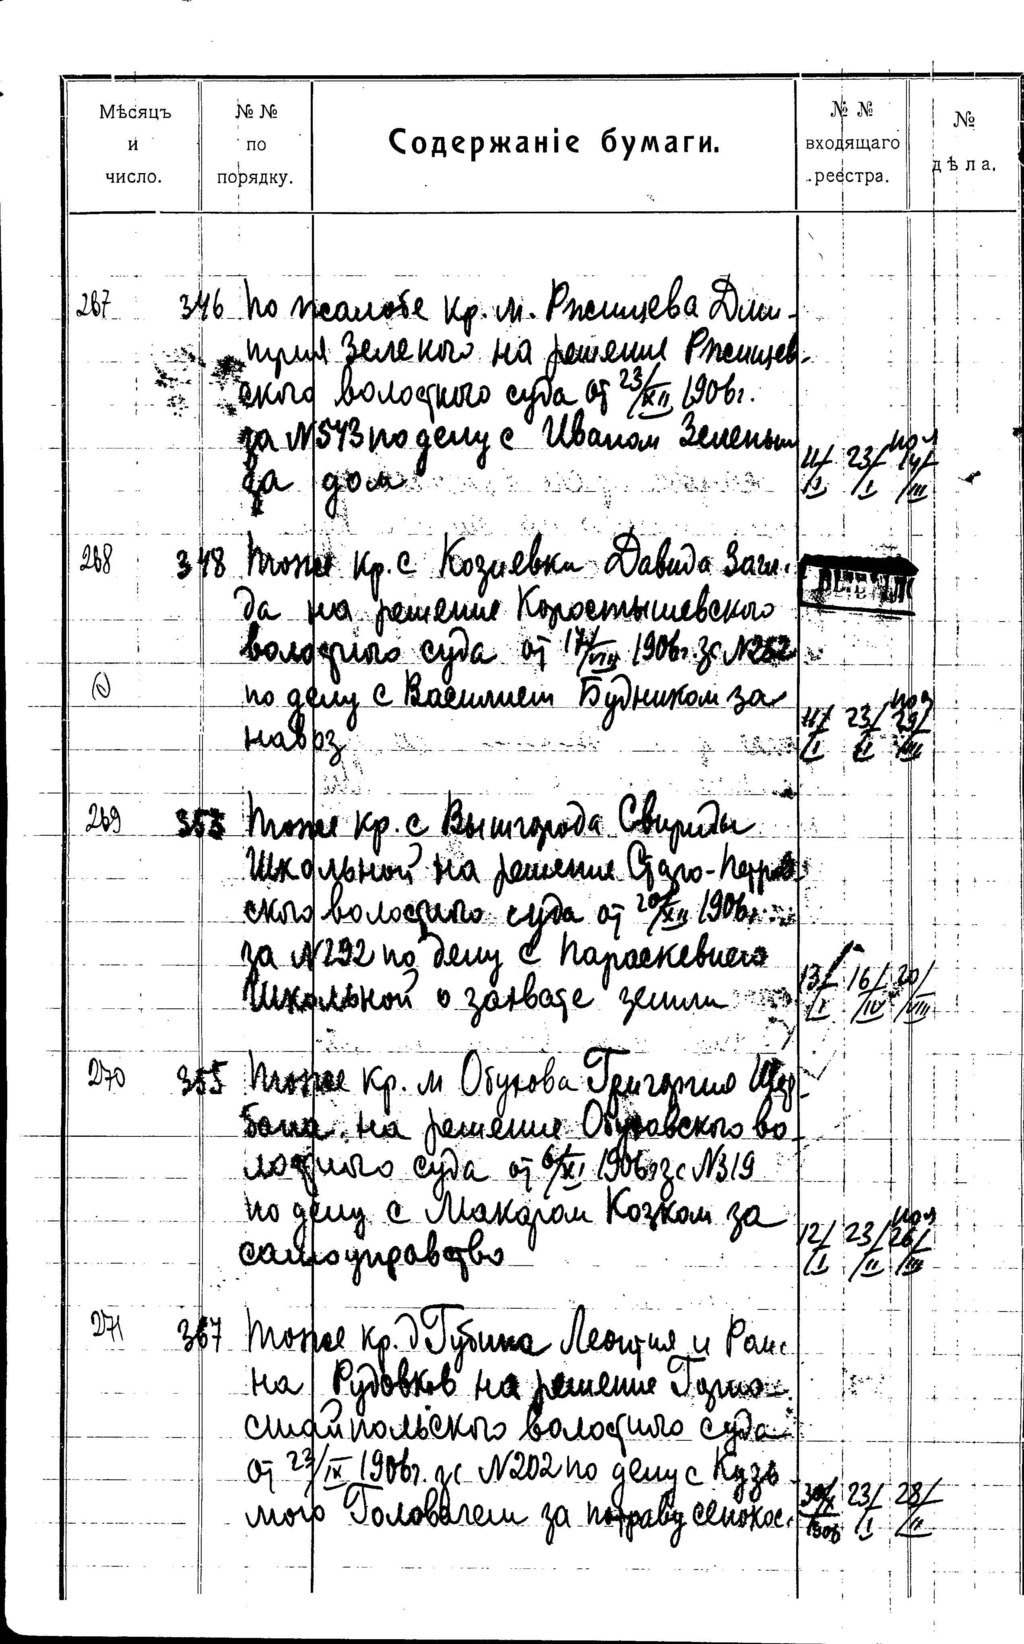 Мѣсяцъ и число. №№ по порядку. Содержаніе бумаги. №№ входящаго реестра. № дѣла.
267 346 По жалобе кр. м. Ржищева Дми-
трия Зеленого на решение Ржищев-
ского волостного суда от 23/XII 1906г.
за N543 по делу с Иваном Зеленым
за дом 11/I 23/I 14/III
268 348 Тоже кр. с Козиевки Давида Загл.
да на решение Коростышевского
волостного суда от 17/VIII 1906г. за N252
по делу с Василием Будником за
навоз 11/I 23/II 29/III
269 353 Тоже кр. с Вышгорода Свириды
Школьной на решение Старо-Петров
ского волостного суда от 20/XII 1906г.
за N292 по делу с Параскевиею
Школьной о захвате земли 13/I 16/IV 20/VIII
270 355 Тоже кр. м Обухова Григория Щер
бана на решение Обуховского во
лостного суда от 6/XI 1906г за N319
по делу с Макаром Козком за
самоуправство 12/I 23/II 26/III
271 367 Тоже кр. д Губина Леонтия и Рома
на Рудовков на решение Горно-
стайпольского волостного суда
от 23/IX 1906г. за N202 по делу с Кузь
мою Головачем за потраву сенокос. 30/X 1906 23/I 28/II